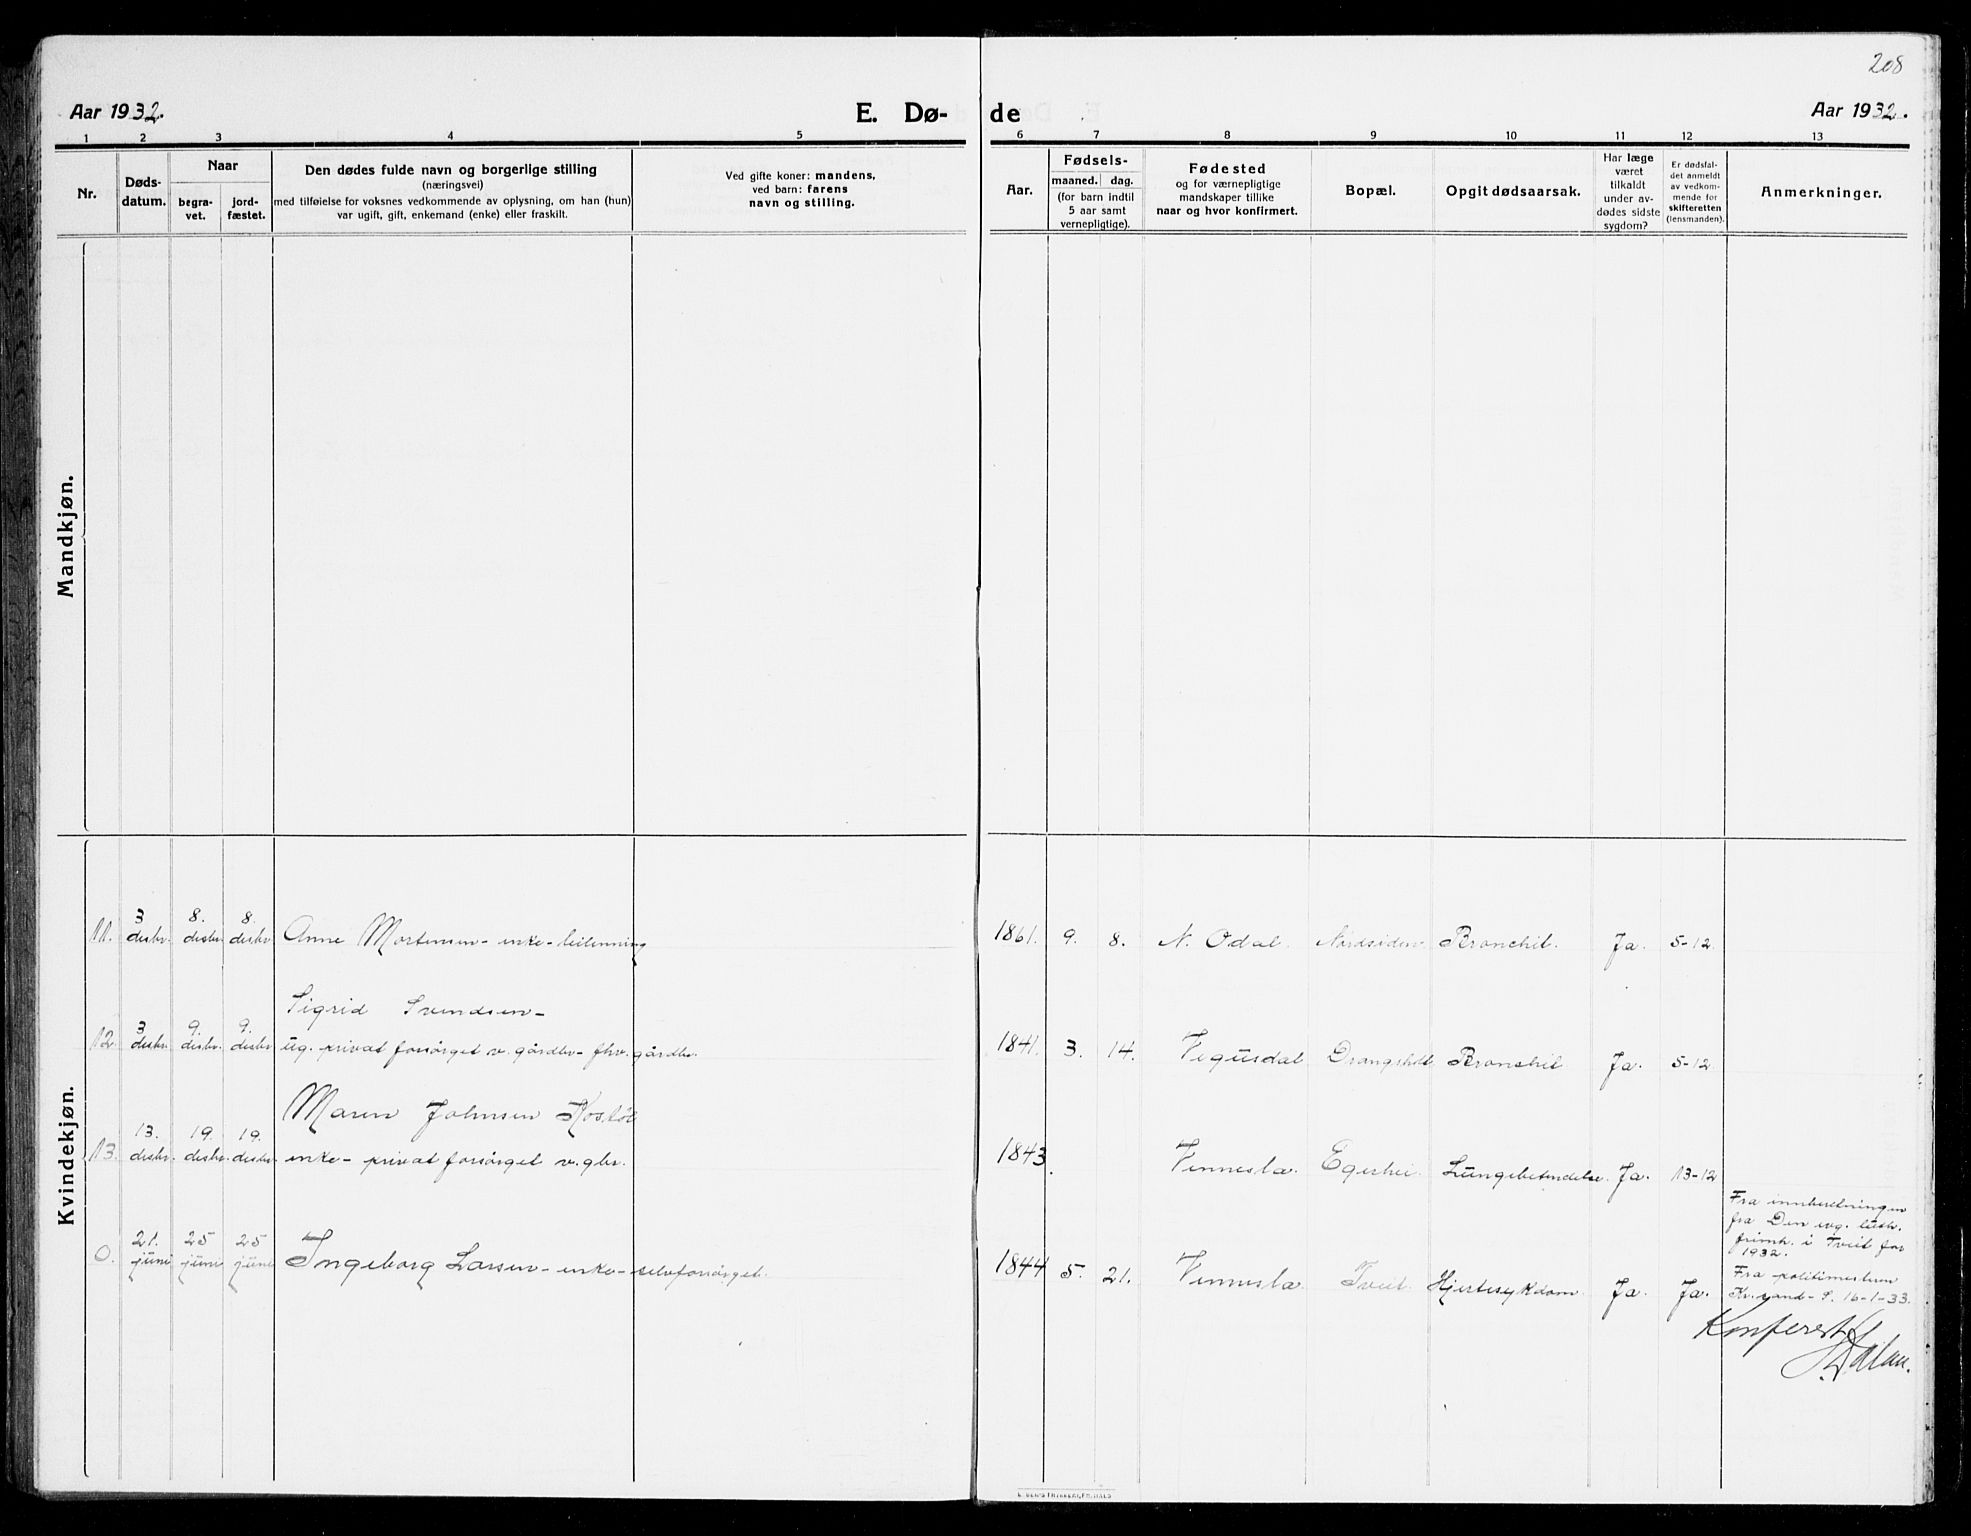 208
Aar 1932.
E. Dø-
de
Aar 1932.
1 2 3 4 5 6 7 8 9 10 11 12 13
Nr.
Døds-
datum.
Naar
begra-
vet.
jord-
fæstet.
Den dødes fulde navn og borgerlige stilling
(næringsvei)
med tilføielse for voksnes vedkommende av oplysning, om han (hun)
var ugift, gift, enkemand (enke) eller fraskilt.
Ved gifte koner: mandens,
ved barn: farens
navn og stilling.
Aar.
Fødsels-
maaned. dag.
(for barn indtil
5 aar samt
vernepligtige).
Fødested
og for værnepligtige
mandskaper tillike
naar og hvor konfirmert.
Bopæl.
Opgit dødsaarsak.
Har læge
været
tilkaldt
under av-
dødes sidste
sygdom?
Er dødsfal-
det anmeldt
av vedkom-
mende for
skifteretten
(lensmanden).
Anmerkninger.
Mandkjøn.
Kvindekjøn.
3 8. 8.
11. desbr. desbr. desbr. Anne Mortensen - enke - 1861. 9. 8. N. Odal. Nordsiden Bronchit. Ja. 5-12.
Sigrid Svendsen -
3 9. 9.
12. desbr. desbr. desbr. ug. privat forsörget v. gårdbr - fhv. gårdbr. 1841. 3. 14. Vegusdal Bronchit Ja. 5-12
Maren Johnsen
13. 19. 19.
13. desbr. desbr. desbr. enke - privat forsörget v. gbr. 1843. Vennesla. Egerhei. Lungebetendelse. Ja. 13-12
21. 25 25
0. juni juni juni Ingeborg Larsen - enke - selvforsörget. 1844 5. 21. Vennesla. Tveit. Hjertesykdom. Ja. Ja.
Fra innberetningen
fra Den evg. luth.
frimh. i Tveit for
1932.
Fra politimesteren
Kr.sand - S. 16-1-33.
Konferert